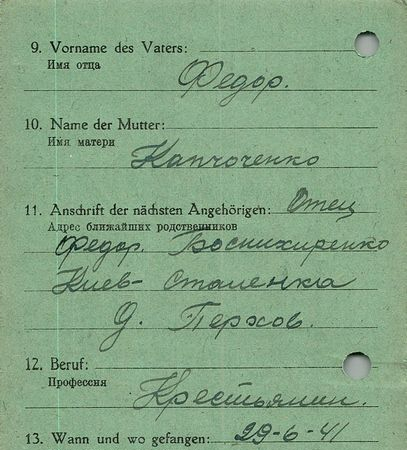 9. Vorname des Vaters:
Имя отца
Федор.
10. Name der Mutter:
Имя матери
Капчоченко
11. Anschrift der nächsten Angehörigen: Отец
Адрес ближайших родственников
Федор.
Киев-Сталенка
д. Перхов.
12. Beruf:
Профессия
Крестьянин.
13. Wann und wo gefangen: 29-6-41